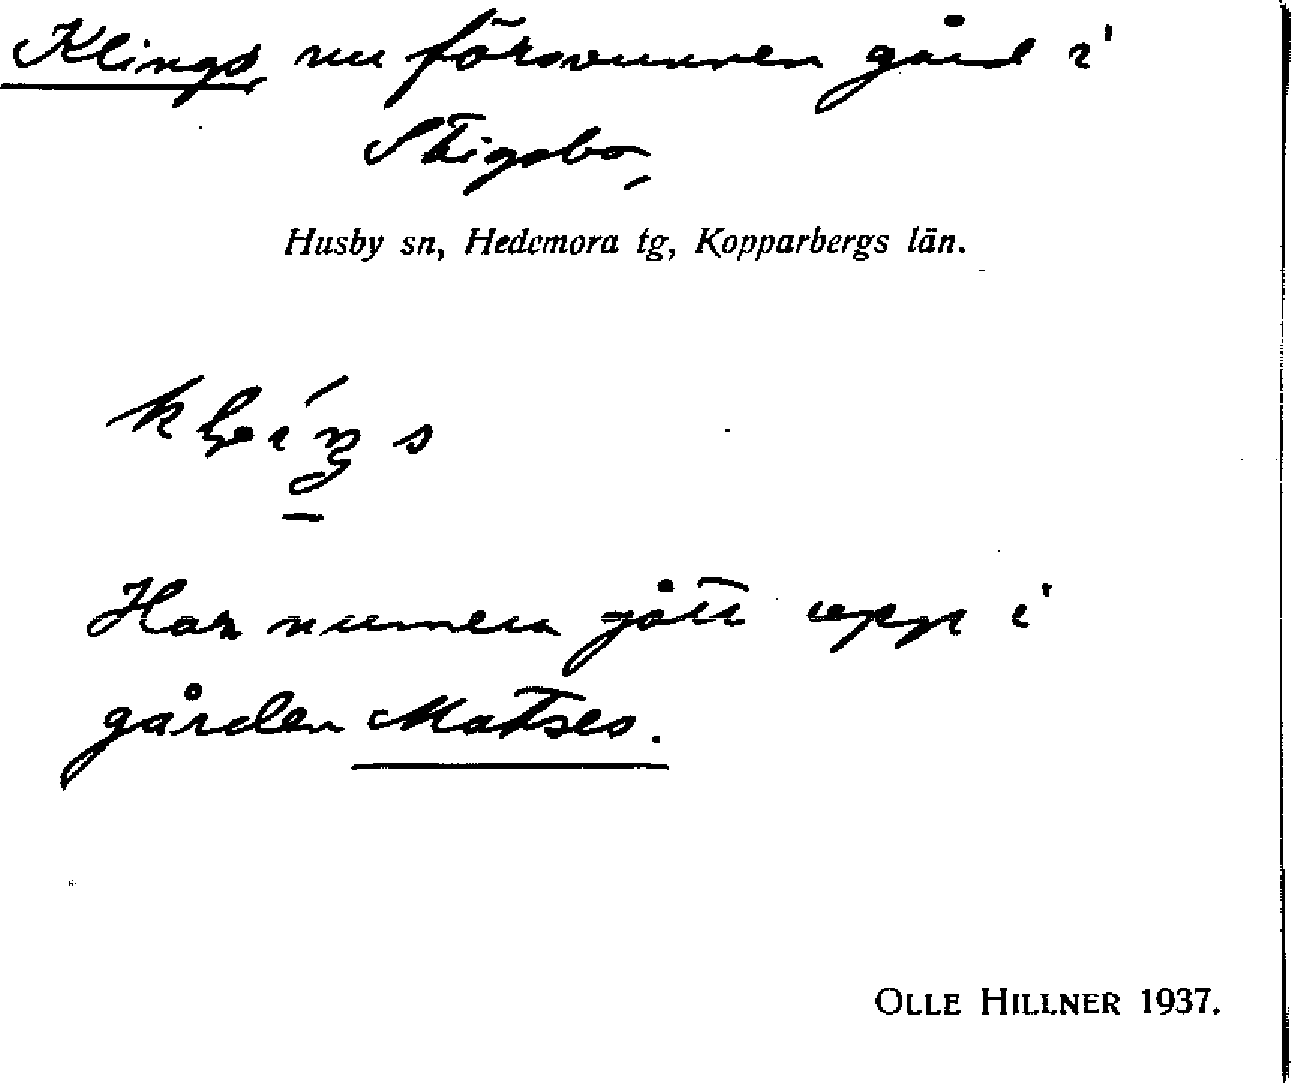 Klings, nu försvunnen gård i
Stigsbo,
Husby sn, Hedemora tg, Kopparbergs län.
Har numera gått upp i
gården Matses.
OLLE HILLNER 1937.